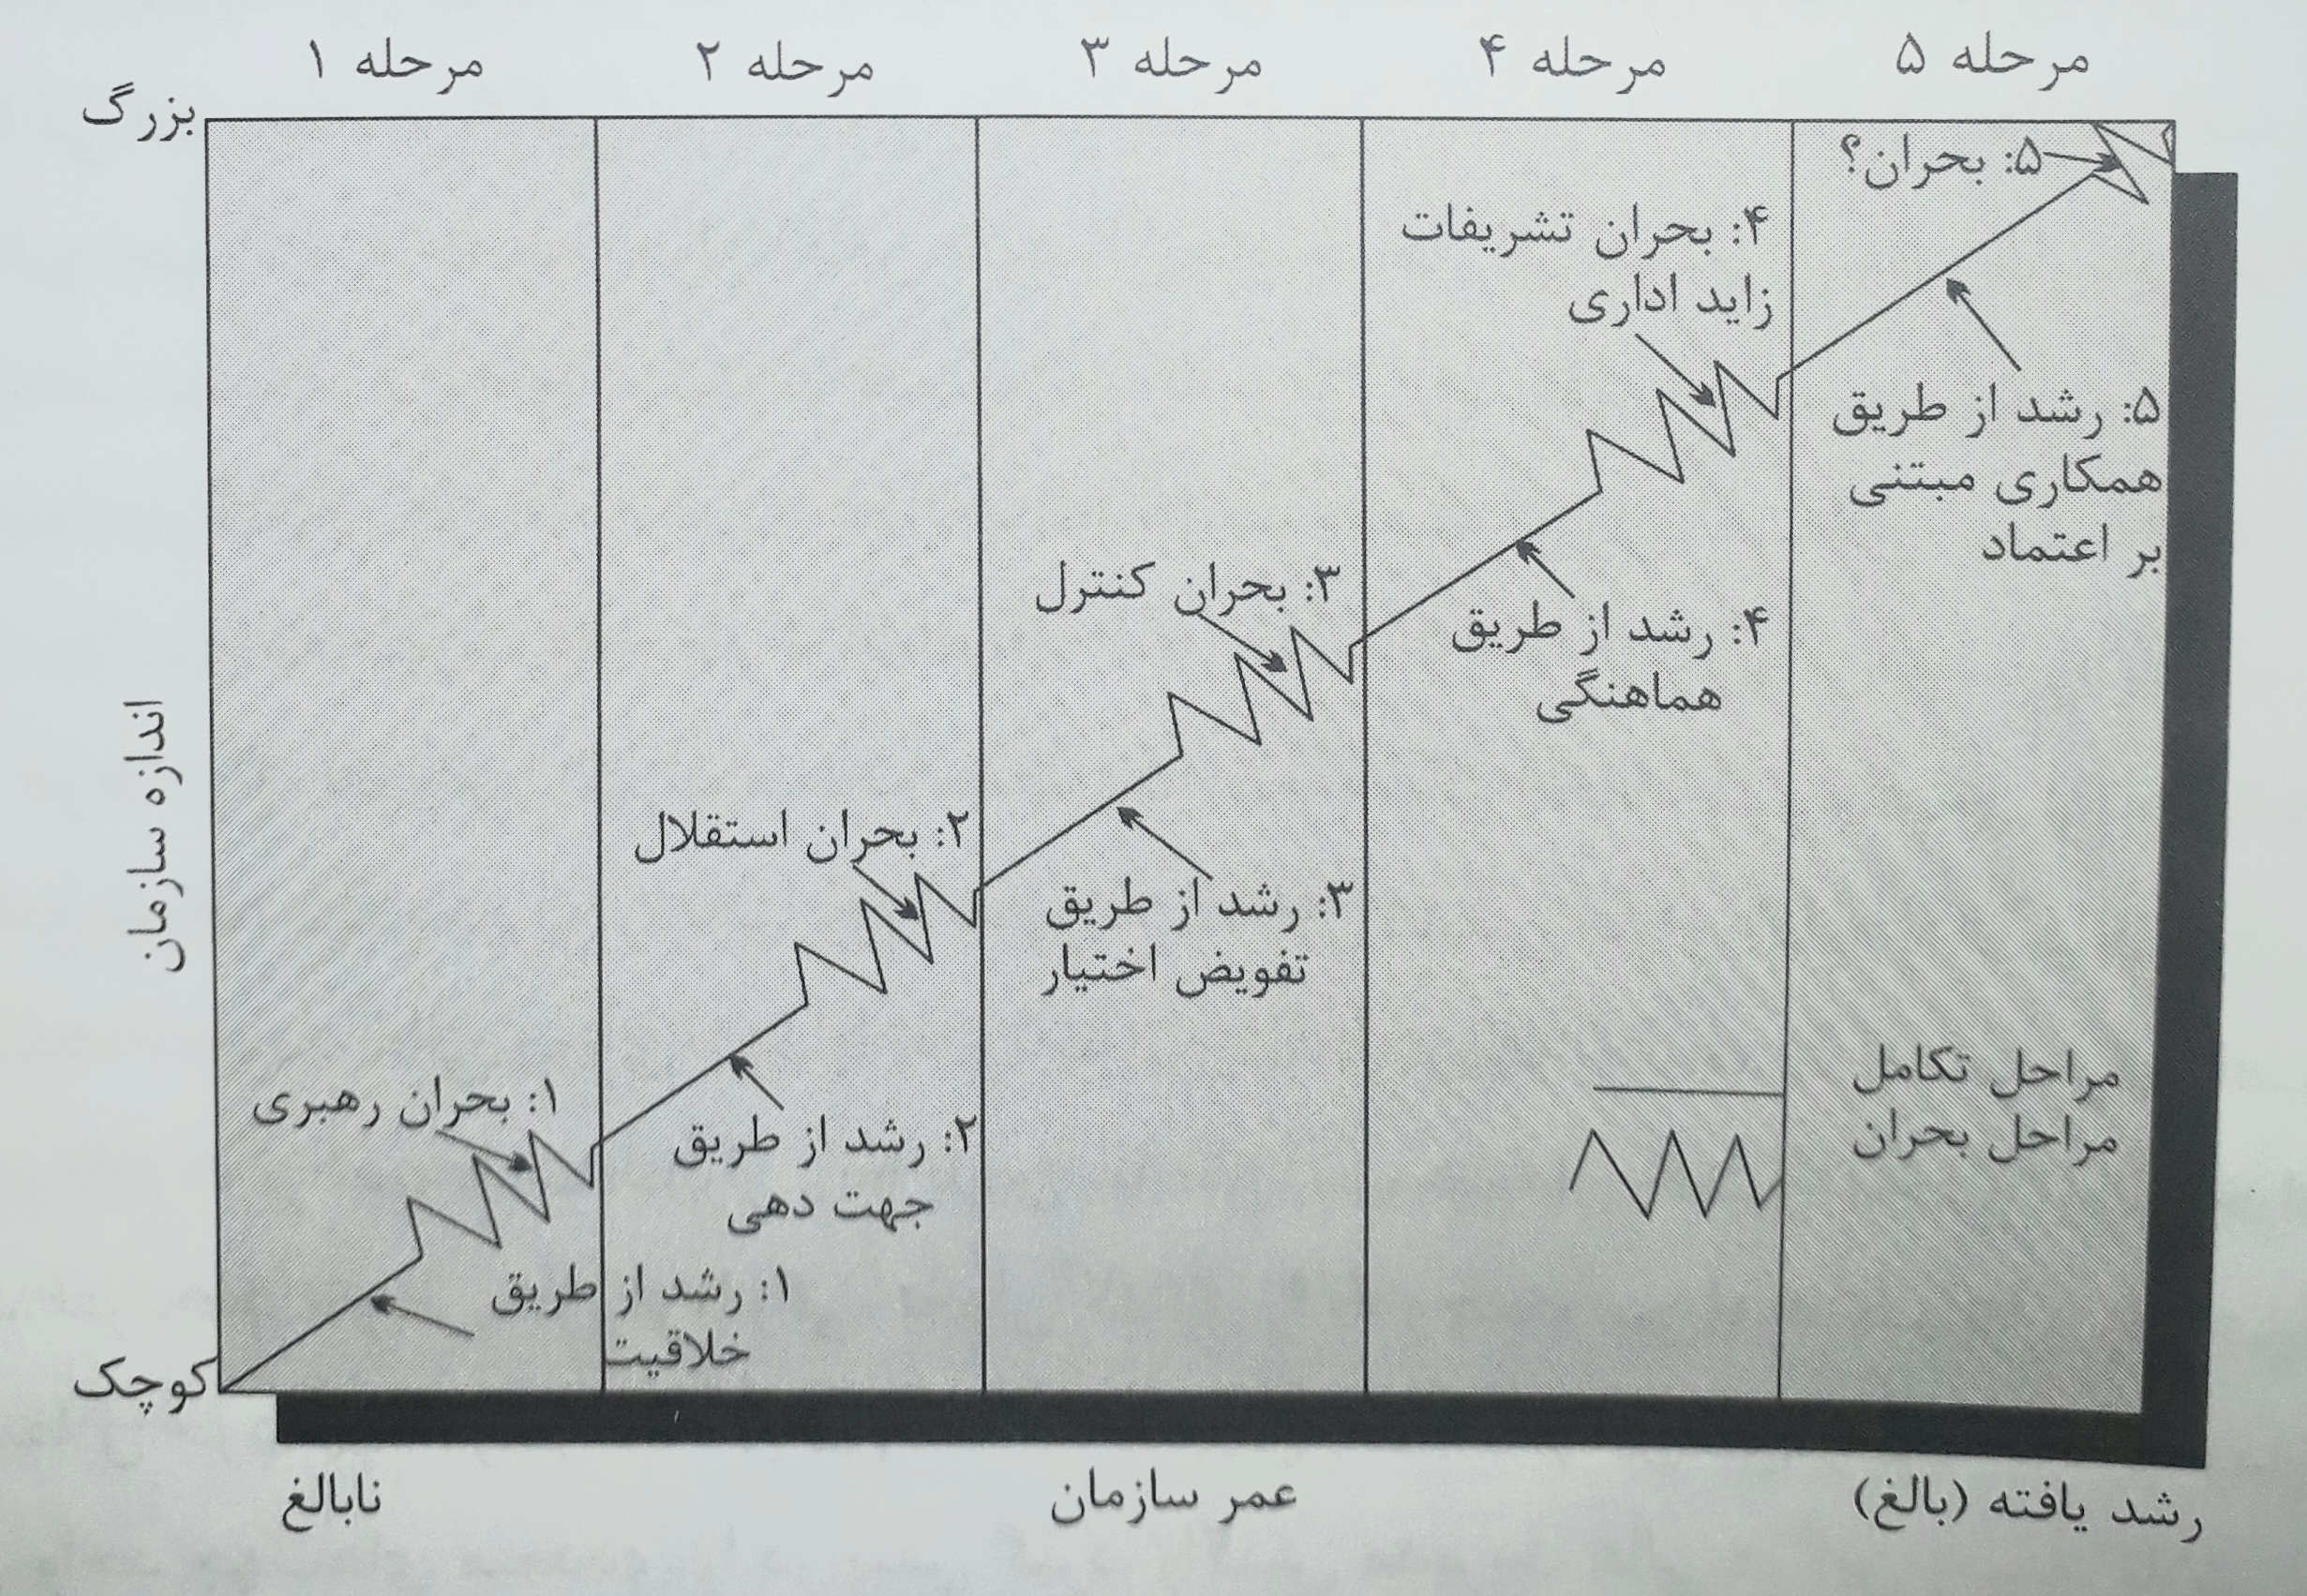 مرحله ۱
مرحله ۲
مرحله ۳
مرحله ۴
مرحله ۵
بزرگ
۵: بحران؟
۴: بحران تشریفات
زاید اداری
۵: رشد از طریق
همکاری مبتنی
بر اعتماد
۳: بحران کنترل
۴: رشد از طریق
هماهنگی
اندازه سازمان
۲: بحران استقلال
۳: رشد از طریق
تفویض اختیار
۱: بحران رهبری
۲: رشد از طریق
جهت دهی
مراحل تکامل
مراحل بحران
۱: رشد از طریق
خلاقیت
کوچک
نابالغ
عمر سازمان
رشد یافته (بالغ)